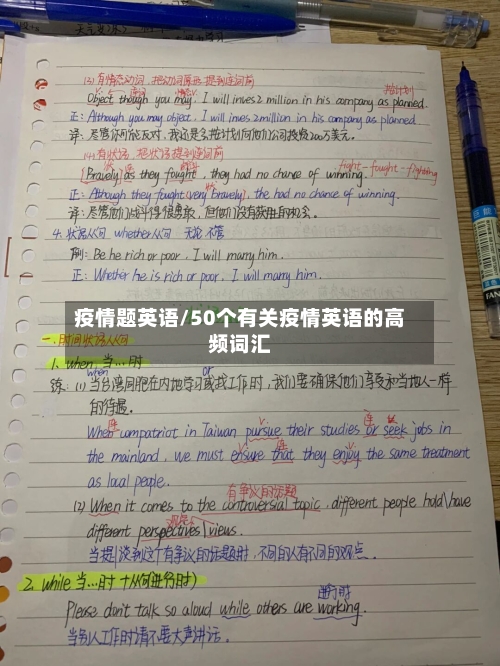 (3) 有情态动词，把动词原形提到连词前
按计划
Object though you may. I will inves 2 million in his company as planned.
正: Although you may object. I will inves 2 million in his company as planned
译: 尽管你可能反对，我还是会按计划向他们公司投资200万美元。
(4) 有状语，把状语提到连词前
fight-fought-fighting
(Bravely) as they fought, they had no chance of winning.
正: Although they fought (very bravely), the had no chance of winning.
译: 尽管他们战斗得很勇敢，但他们没有获胜的机会。
4. 状语从句 whether从句 无论 不管
例: Be he rich or poor, I will marry him.
正: Whether he is rich or poor. I will marry him.
疫情题英语/50个有关疫情英语的高
频词汇
一. 时间状语从句
1. when 当...时
when or
练: (1) 当台湾同胞在内地学习或找工作时，我们要确保他们享受和当地人一样
的待遇。
When compatriot in Taiwan pursue their studies or seek jobs in
the mainland, we must ensure that they enjoy the same treatment
as local people.
有争议的话题
(2) When it comes to the controversial topic, different people hold\have
观点
different perspectives\views.
当提\谈到这个有争议的话题时，不同的人有不同的观点。
2. while 当...时 + 从句(进行时)
进行时
Please don't talk so aloud while others are working.
当别人工作时请不要大声讲话。